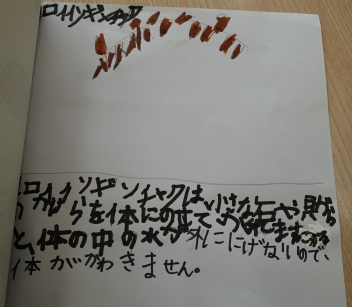 ヨロイイソギンチャク
ヨロイイソギンチャクは小さな石や貝が
のからを体にのせてかくれます。こうする
と、体の中の水が外ににげないので、
体がかわきません。